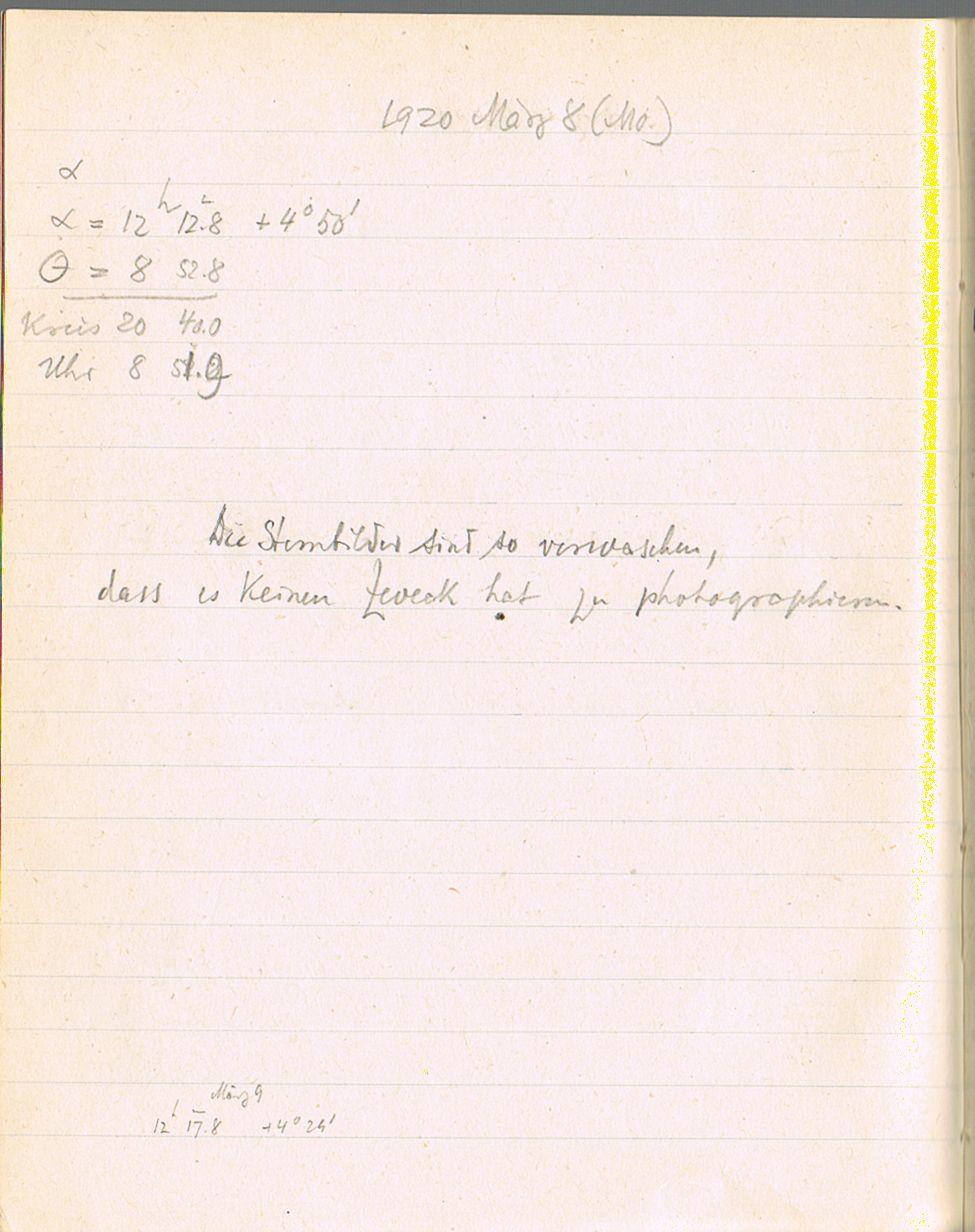 1920 März 8 (Mo.)
α
α = 12h 12m.8 +4° 50'
θ = 8 52.8
Kreis 20 40.0
Uhr 8 51.9
Die Sternbilder sind so verwaschen,
dass es keinen Zweck hat zu photographieren.
März 9
12h 17m.8 +4° 29'